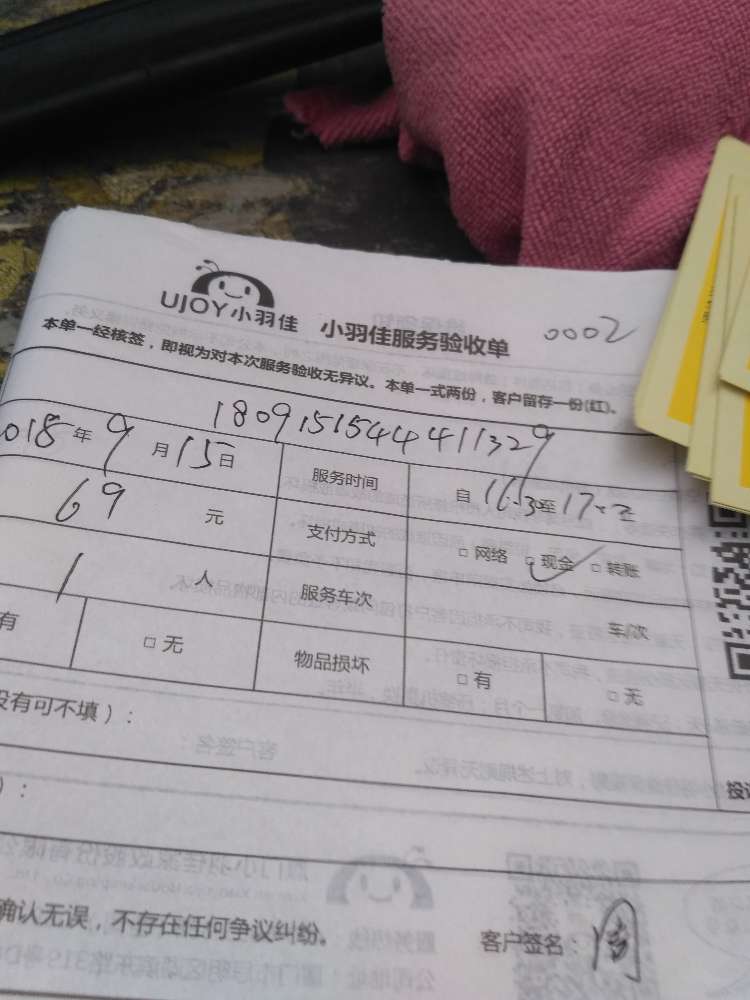 UJOY小羽佳 小羽佳服务验收单 0002
本单一经核签，即视为对本次服务验收无异议。本单一式两份，客户留存一份(红)。
1809151544411329
2018年9月15日 服务时间 自16:3至17
69元 支付方式 □网络 □现金 □转账
1人 服务车次 车/次
有 □无 物品损坏 □有 □无
没有可不填）：
）：
投
确认无误，不存在任何争议纠纷。 客户签名：